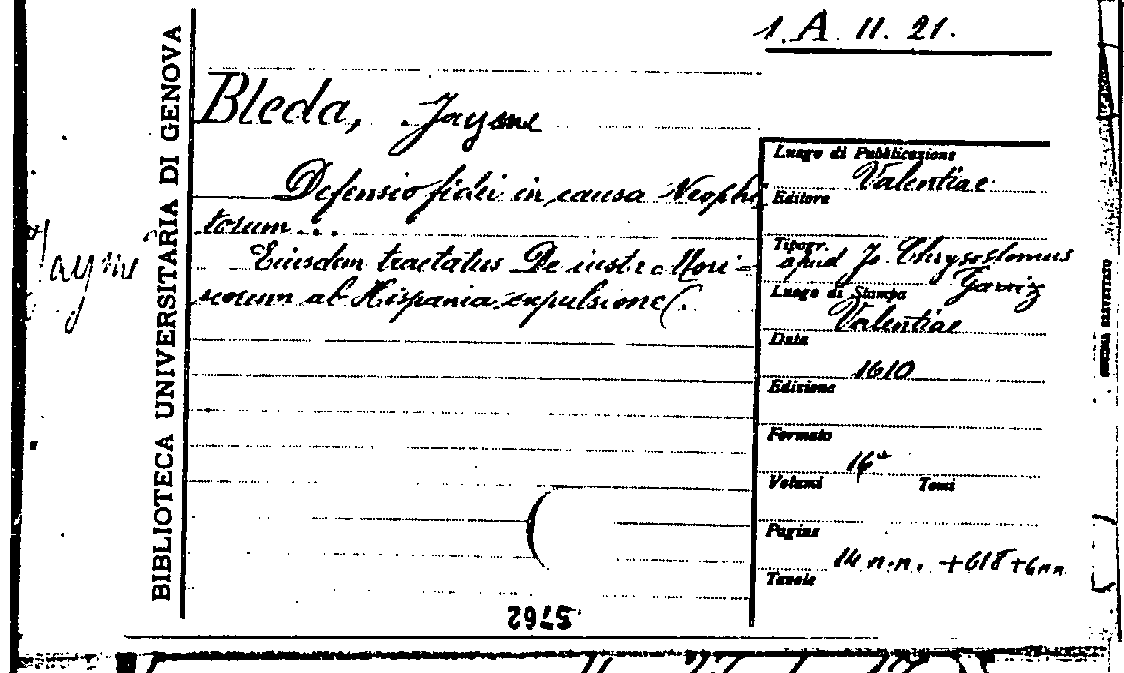 1. A. 11. 21.
BIBLIOTECA UNIVERSITARIA DI GENOVA
Bleda, Jayme
Defensio fidei in causa Neophi
torum ...
Eiusdem tractatus De iusta Mori-
scorum ab Hispania expulsione.
Jayme
Luogo di Pubblicazione
Valentiae
Editore
Tipogr.
apud Jo. Chrysostomus
Garriz
Luogo di Stampa
Valentiae
Data
1610
Edizione
Formato
16°
Volumi Tomi
Pagine
14 n.n. + 618 + 6 nn
Tavole
5762